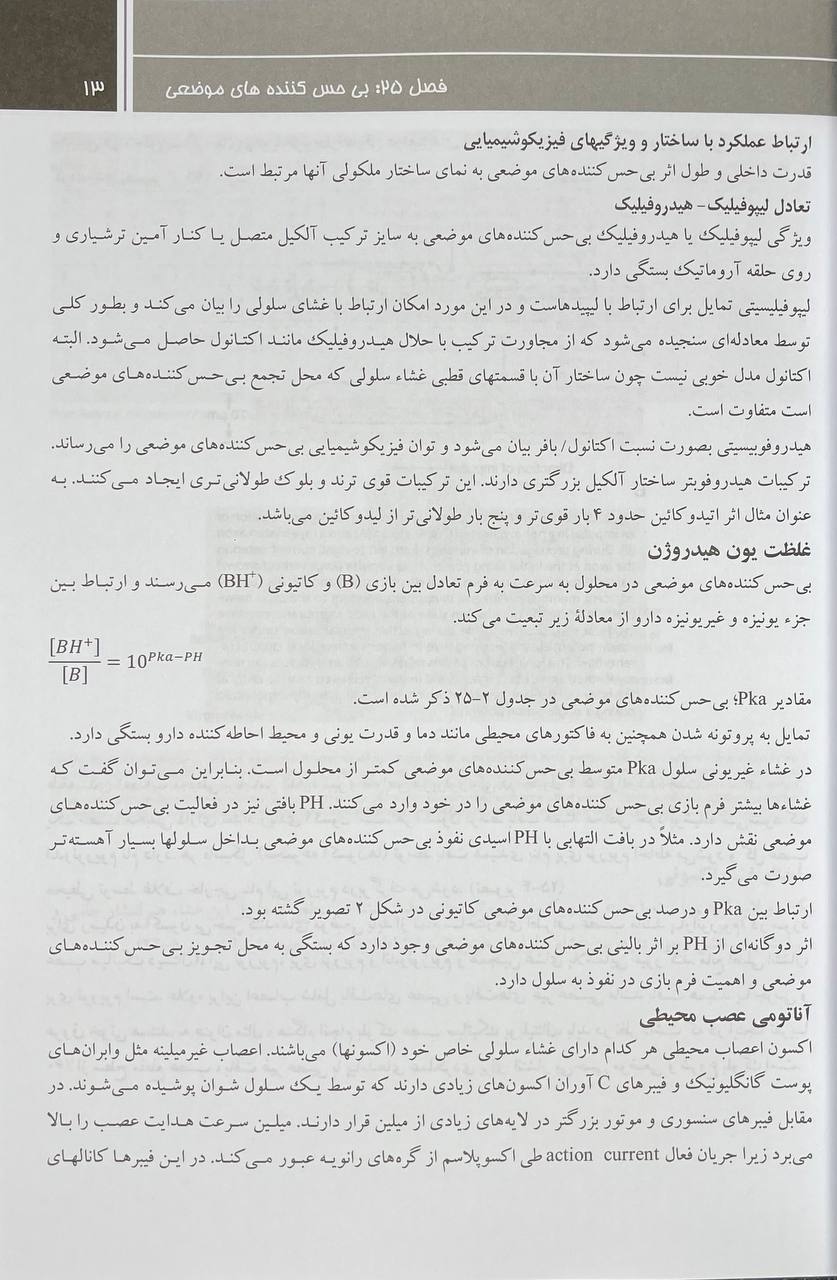 فصل ۲۵: بی حس کننده های موضعی
۱۳
ارتباط عملکرد با ساختار و ویژگیهای فیزیکوشیمیایی
قدرت داخلی و طول اثر بی‌حس‌کننده‌های موضعی به نمای ساختار ملکولی آنها مرتبط است.
تعادل لیپوفیلیک- هیدروفیلیک
ویژگی لیپوفیلیک یا هیدروفیلیک بی‌حس‌کننده‌های موضعی به سایز ترکیب آلکیل متصل یا کنار آمین ترشیاری و
روی حلقه آروماتیک بستگی دارد.
لیپوفیلیسیتی تمایل برای ارتباط با لیپیدهاست و در این مورد امکان ارتباط با غشای سلولی را بیان می‌کند و بطور کلی
توسط معادله‌ای سنجیده می‌شود که از مجاورت ترکیب با حلال هیدروفیلیک مانند اکتانول حاصل می‌شود. البته
اکتانول مدل خوبی نیست چون ساختار آن با قسمتهای قطبی غشاء سلولی که محل تجمع بی‌حس‌کننده‌های موضعی
است متفاوت است.
هیدروفوبیسیتی بصورت نسبت اکتانول/ بافر بیان می‌شود و توان فیزیکوشیمیایی بی‌حس‌کننده‌های موضعی را می‌رساند.
ترکیبات هیدروفوبتر ساختار آلکیل بزرگتری دارند. این ترکیبات قوی ترند و بلوک طولانی‌تری ایجاد می‌کنند. به
عنوان مثال اثر اتیدوکائین حدود ۴ بار قوی‌تر و پنج بار طولانی‌تر از لیدوکائین می‌باشد.
غلظت یون هیدروژن
بی‌حس‌کننده‌های موضعی در محلول به سرعت به فرم تعادل بین بازی (B) و کاتیونی (BH⁺) می‌رسند و ارتباط بین
جزء یونیزه و غیریونیزه دارو از معادلۀ زیر تبعیت می‌کند.
[BH+]/[B] = 10^(Pka−PH)
مقادیر Pka؛ بی‌حس‌کننده‌های موضعی در جدول ۲-۲۵ ذکر شده است.
تمایل به پروتونه شدن همچنین به فاکتورهای محیطی مانند دما و قدرت یونی و محیط احاطه‌کننده دارو بستگی دارد.
در غشاء غیریونی سلول Pka متوسط بی‌حس‌کننده‌های موضعی کمتر از محلول است. بنابراین می‌توان گفت که
غشاءها بیشتر فرم بازی بی‌حس کننده‌های موضعی را در خود وارد می‌کنند. PH بافتی نیز در فعالیت بی‌حس‌کننده‌های
موضعی نقش دارد. مثلاً در بافت التهابی با PH اسیدی نفوذ بی‌حس‌کننده‌های موضعی بداخل سلولها بسیار آهسته‌تر
صورت می‌گیرد.
ارتباط بین Pka و درصد بی‌حس‌کننده‌های موضعی کاتیونی در شکل ۲ تصویر گشته بود.
اثر دوگانه‌ای از PH بر اثر بالینی بی‌حس‌کننده‌های موضعی وجود دارد که بستگی به محل تجویز بی‌حس‌کننده‌های
موضعی و اهمیت فرم بازی در نفوذ به سلول دارد.
آناتومی عصب محیطی
اکسون اعصاب محیطی هر کدام دارای غشاء سلولی خاص خود (اکسونها) می‌باشند. اعصاب غیرمیلینه مثل وابران‌های
پوست گانگلیونیک و فیبرهای C آوران اکسون‌های زیادی دارند که توسط یک سلول شوان پوشیده می‌شوند. در
مقابل فیبرهای سنسوری و موتور بزرگتر در لایه‌های زیادی از میلین قرار دارند. میلین سرعت هدایت عصب را بالا
می‌برد زیرا جریان فعال action current طی اکسوپلاسم از گره‌های رانویه عبور می‌کند. در این فیبرها کانالهای